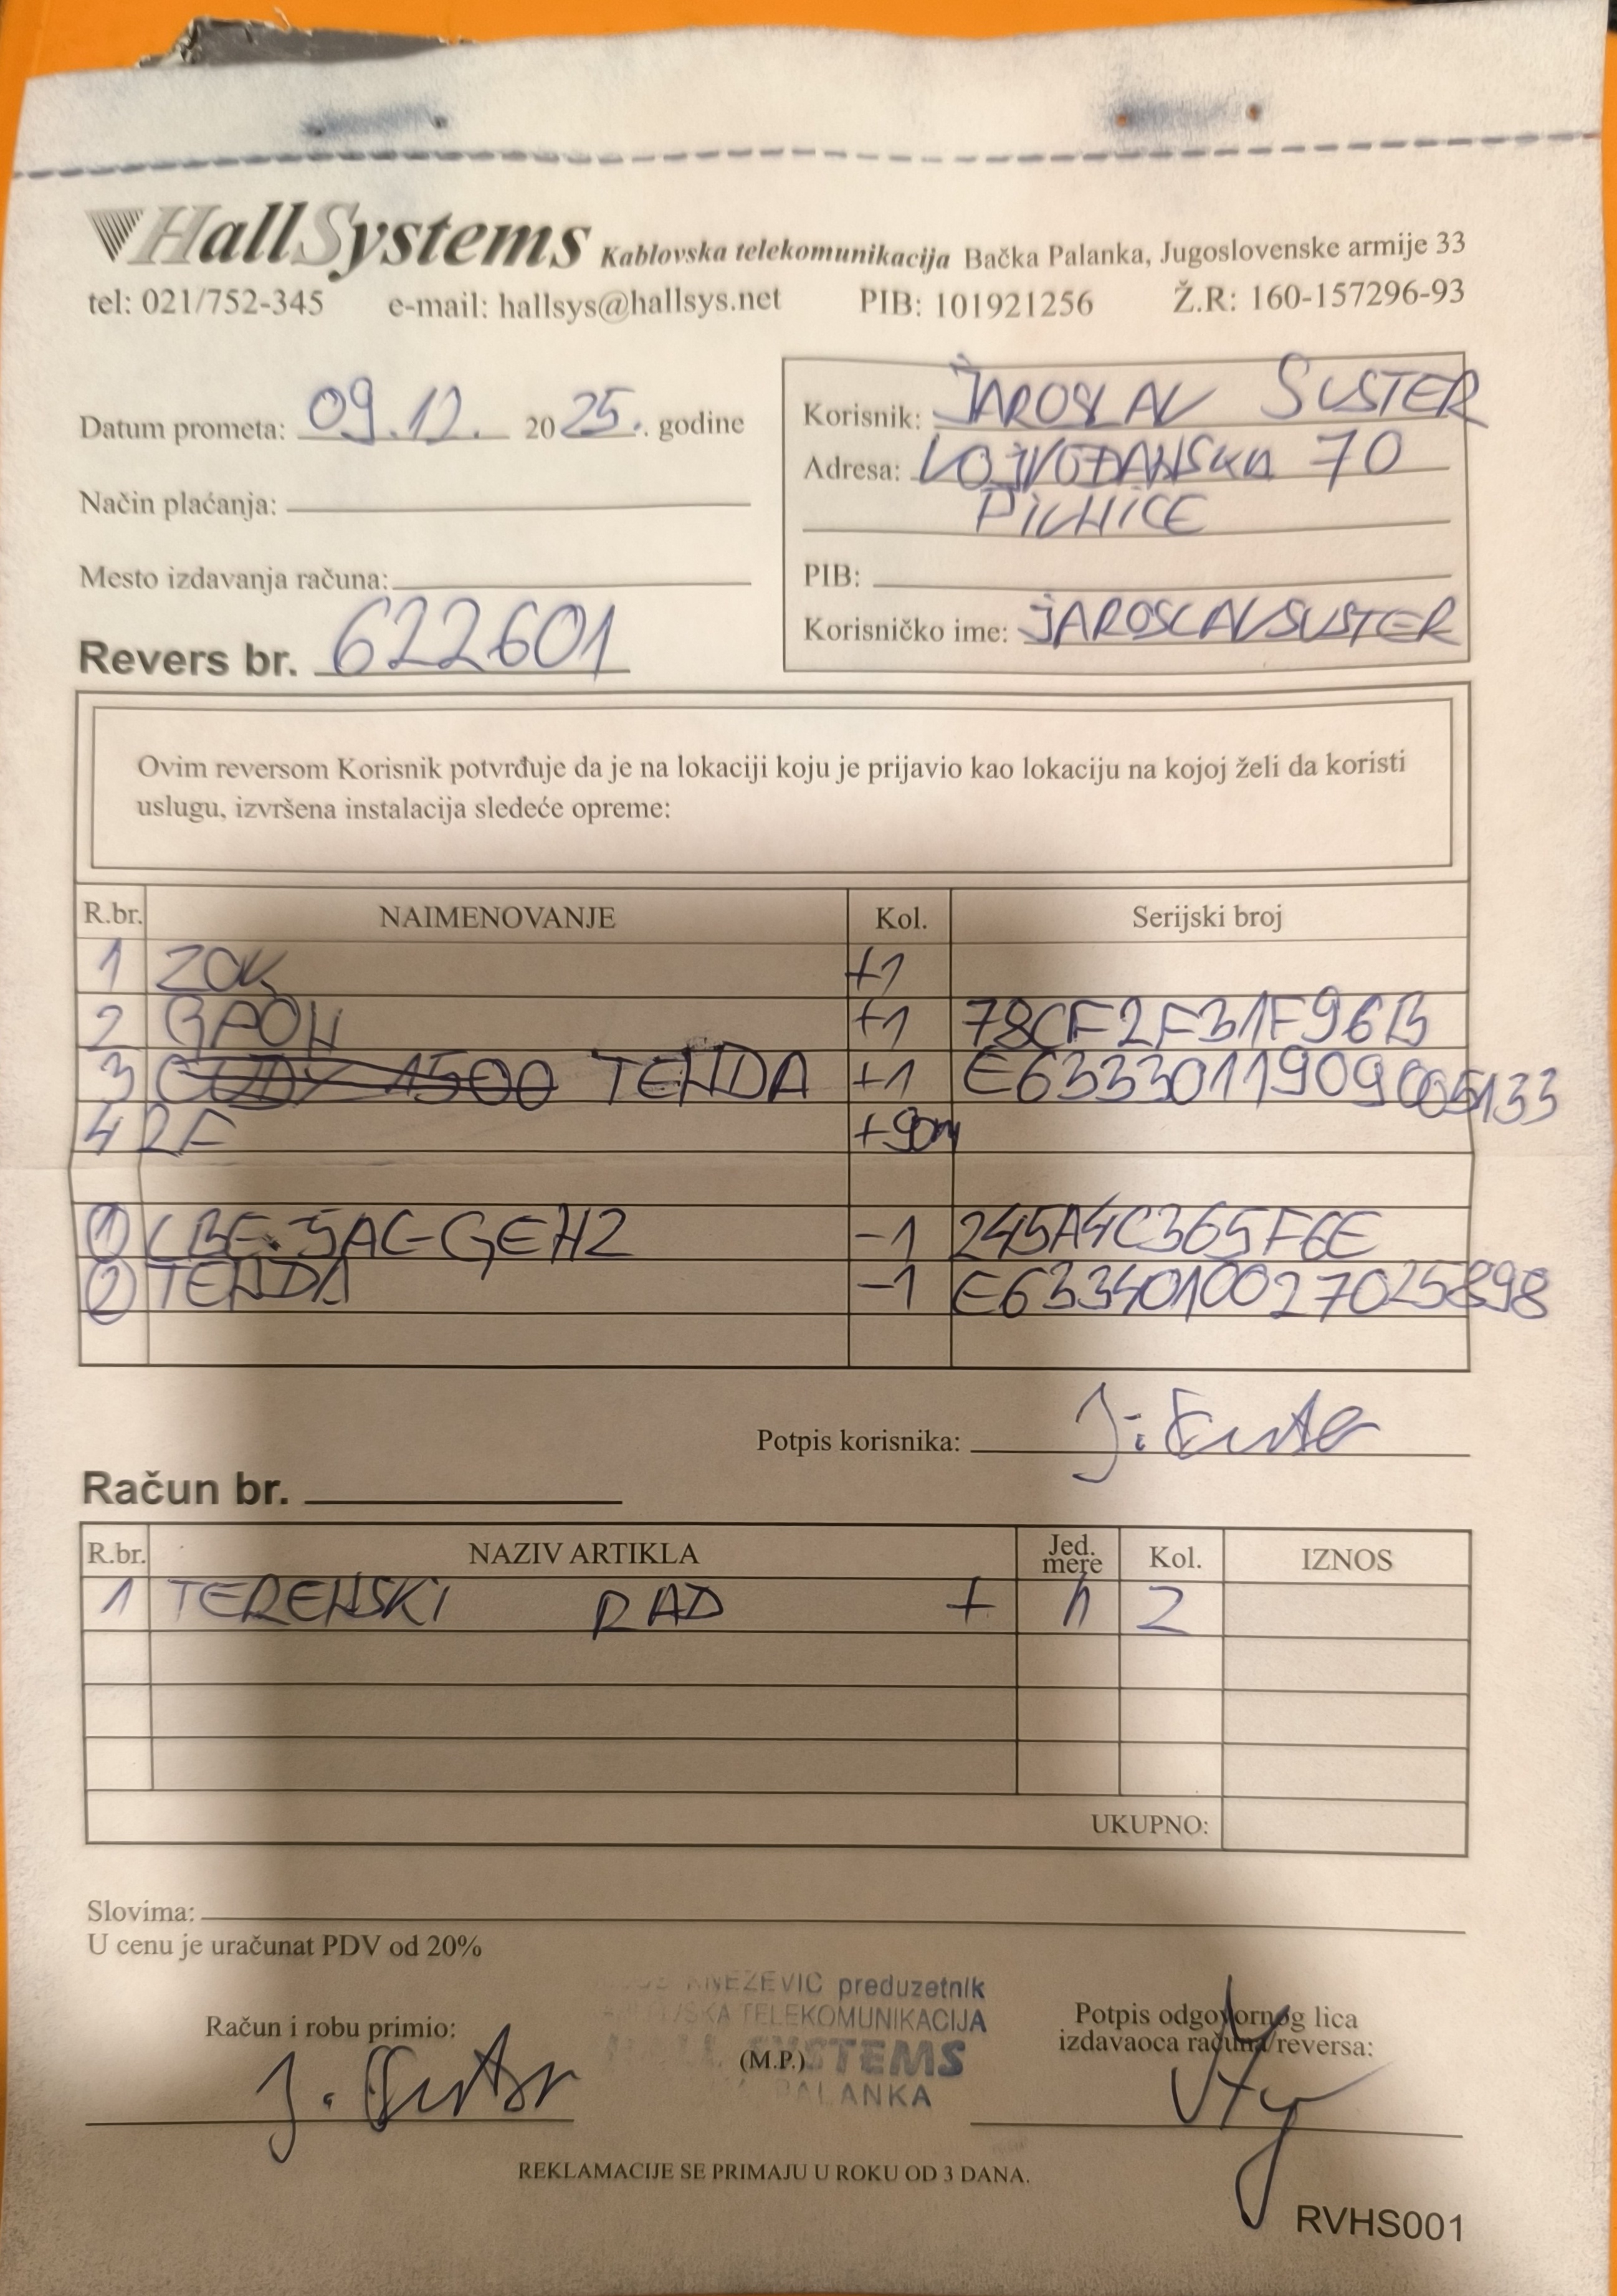 HallSystems Kablovska telekomunikacija Bačka Palanka, Jugoslovenske armije 33
tel: 021/752-345 e-mail: hallsys@hallsys.net PIB: 101921256 Ž.R: 160-157296-93
Datum prometa: 09.12. 2025. godine
Način plaćanja:
Mesto izdavanja računa:
Revers br. 622601
Korisnik: JAROSLAV SUSTER
Adresa: VOJVOĐANSKA 70
PIVNICE
PIB:
Korisničko ime: JAROSLAVSUSTER
Ovim reversom Korisnik potvrđuje da je na lokaciji koju je prijavio kao lokaciju na kojoj želi da koristi
uslugu, izvršena instalacija sledeće opreme:
R.br. NAIMENOVANJE Kol. Serijski broj
1 ZOK +1
2 GPON +1 78CF2F31F96B
3 CUDY 1500 TENDA +1 E6333011909005133
4 2F +90m
1 LBE-5AC-GEN2 -1 245A4C365F6E
2 TENDA -1 E6334010027025898
Potpis korisnika:
Račun br.
R.br. NAZIV ARTIKLA Jed. mere Kol. IZNOS
1 TERENSKI RAD + h 2
UKUPNO:
Slovima:
U cenu je uračunat PDV od 20%
KNEZEVIC preduzetnik
TELEKOMUNIKACIJA
SYSTEMS
PALANKA
Račun i robu primio:
(M.P.)
Potpis odgovornog lica
izdavaoca računa/reversa:
REKLAMACIJE SE PRIMAJU U ROKU OD 3 DANA.
RVHS001